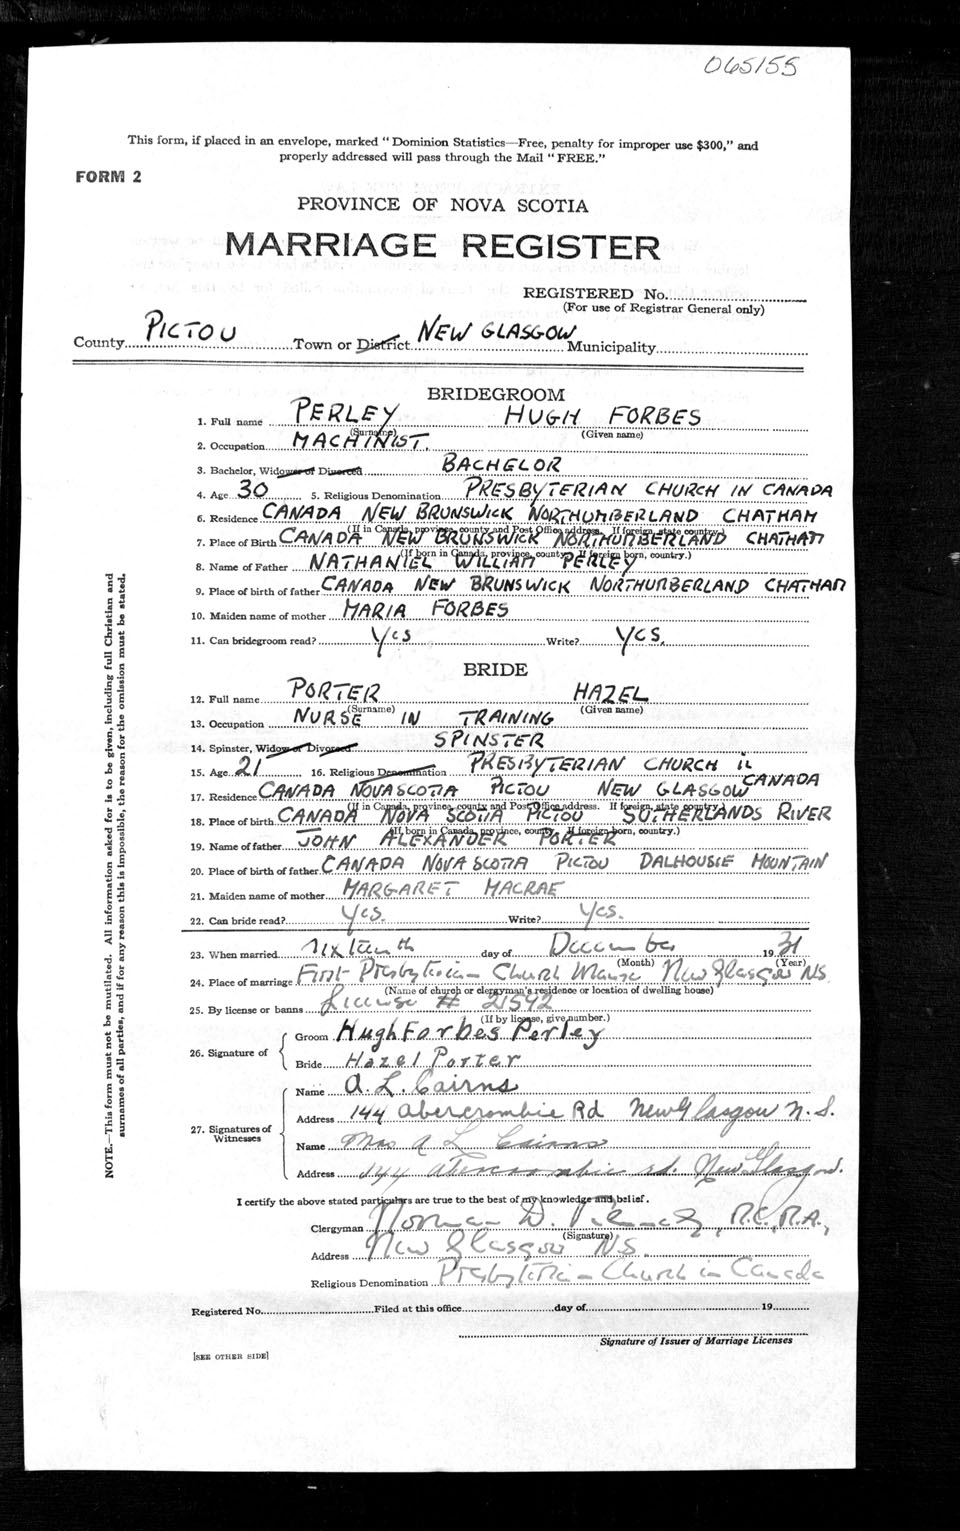 065155
This form, if placed in an envelope, marked "Dominion Statistics—Free, penalty for improper use $300," and
properly addressed will pass through the Mail "FREE."
FORM 2
PROVINCE OF NOVA SCOTIA
MARRIAGE REGISTER
REGISTERED No.
(For use of Registrar General only)
County PICTOU Town or District NEW GLASGOW Municipality
BRIDEGROOM
1. Full name PERLEY HUGH FORBES
(Surname) (Given name)
2. Occupation MACHINIST.
3. Bachelor, Widower or Divorced BACHELOR
4. Age 30 5. Religious Denomination PRESBYTERIAN CHURCH IN CANADA
6. Residence CANADA NEW BRUNSWICK NORTHUMBERLAND CHATHAM
(If in Canada, province, county and Post Office address. If foreign, state country.)
7. Place of Birth CANADA NEW BRUNSWICK NORTHUMBERLAND CHATHAM
(If born in Canada, province, county. If foreign born, country.)
8. Name of Father NATHANIEL WILLIAM PERLEY
9. Place of birth of father CANADA NEW BRUNSWICK NORTHUMBERLAND CHATHAM
10. Maiden name of mother MARIA FORBES
11. Can bridegroom read? Yes Write? Yes.
BRIDE
12. Full name PORTER HAZEL
(Surname) (Given name)
13. Occupation NURSE IN TRAINING
14. Spinster, Widow or Divorced SPINSTER
15. Age 21 16. Religious Denomination PRESBYTERIAN CHURCH in CANADA
17. Residence CANADA NOVA SCOTIA PICTOU NEW GLASGOW
(If in Canada, province, county and Post Office address. If foreign, state country.)
18. Place of birth CANADA NOVA SCOTIA PICTOU SUTHERLANDS RIVER
(If born in Canada, province, county. If foreign born, country.)
19. Name of father JOHN ALEXANDER PORTER
20. Place of birth of father CANADA NOVA SCOTIA PICTOU DALHOUSIE MOUNTAIN
21. Maiden name of mother MARGARET MACRAE
22. Can bride read? Yes. Write? Yes.
23. When married Sixteenth day of December 19 31
(Month) (Year)
24. Place of marriage First Presbyterian Church Manse New Glasgow N.S.
(Name of church or clergyman's residence or location of dwelling house)
25. By license or banns License # 21592
(If by license, give number.)
26. Signature of
Groom Hugh Forbes Perley
Bride Hazel Porter
27. Signatures of Witnesses
Name A. L. Cairns
Address 144 Abercrombie Rd New Glasgow N.S.
Name Mrs A L Cairns
Address 144 Abercrombie rd. New Glasgow.
I certify the above stated particulars are true to the best of my knowledge and belief.
Clergyman Norman D.
(Signature)
Address New Glasgow NS.
Religious Denomination Presbyterian Church in Canada
Registered No. Filed at this office day of 19
Signature of Issuer of Marriage Licenses
[SEE OTHER SIDE]
NOTE.—This form must not be mutilated. All information asked for is to be given, including full Christian and
surnames of all parties, and if for any reason this is impossible, the reason for the omission must be stated.